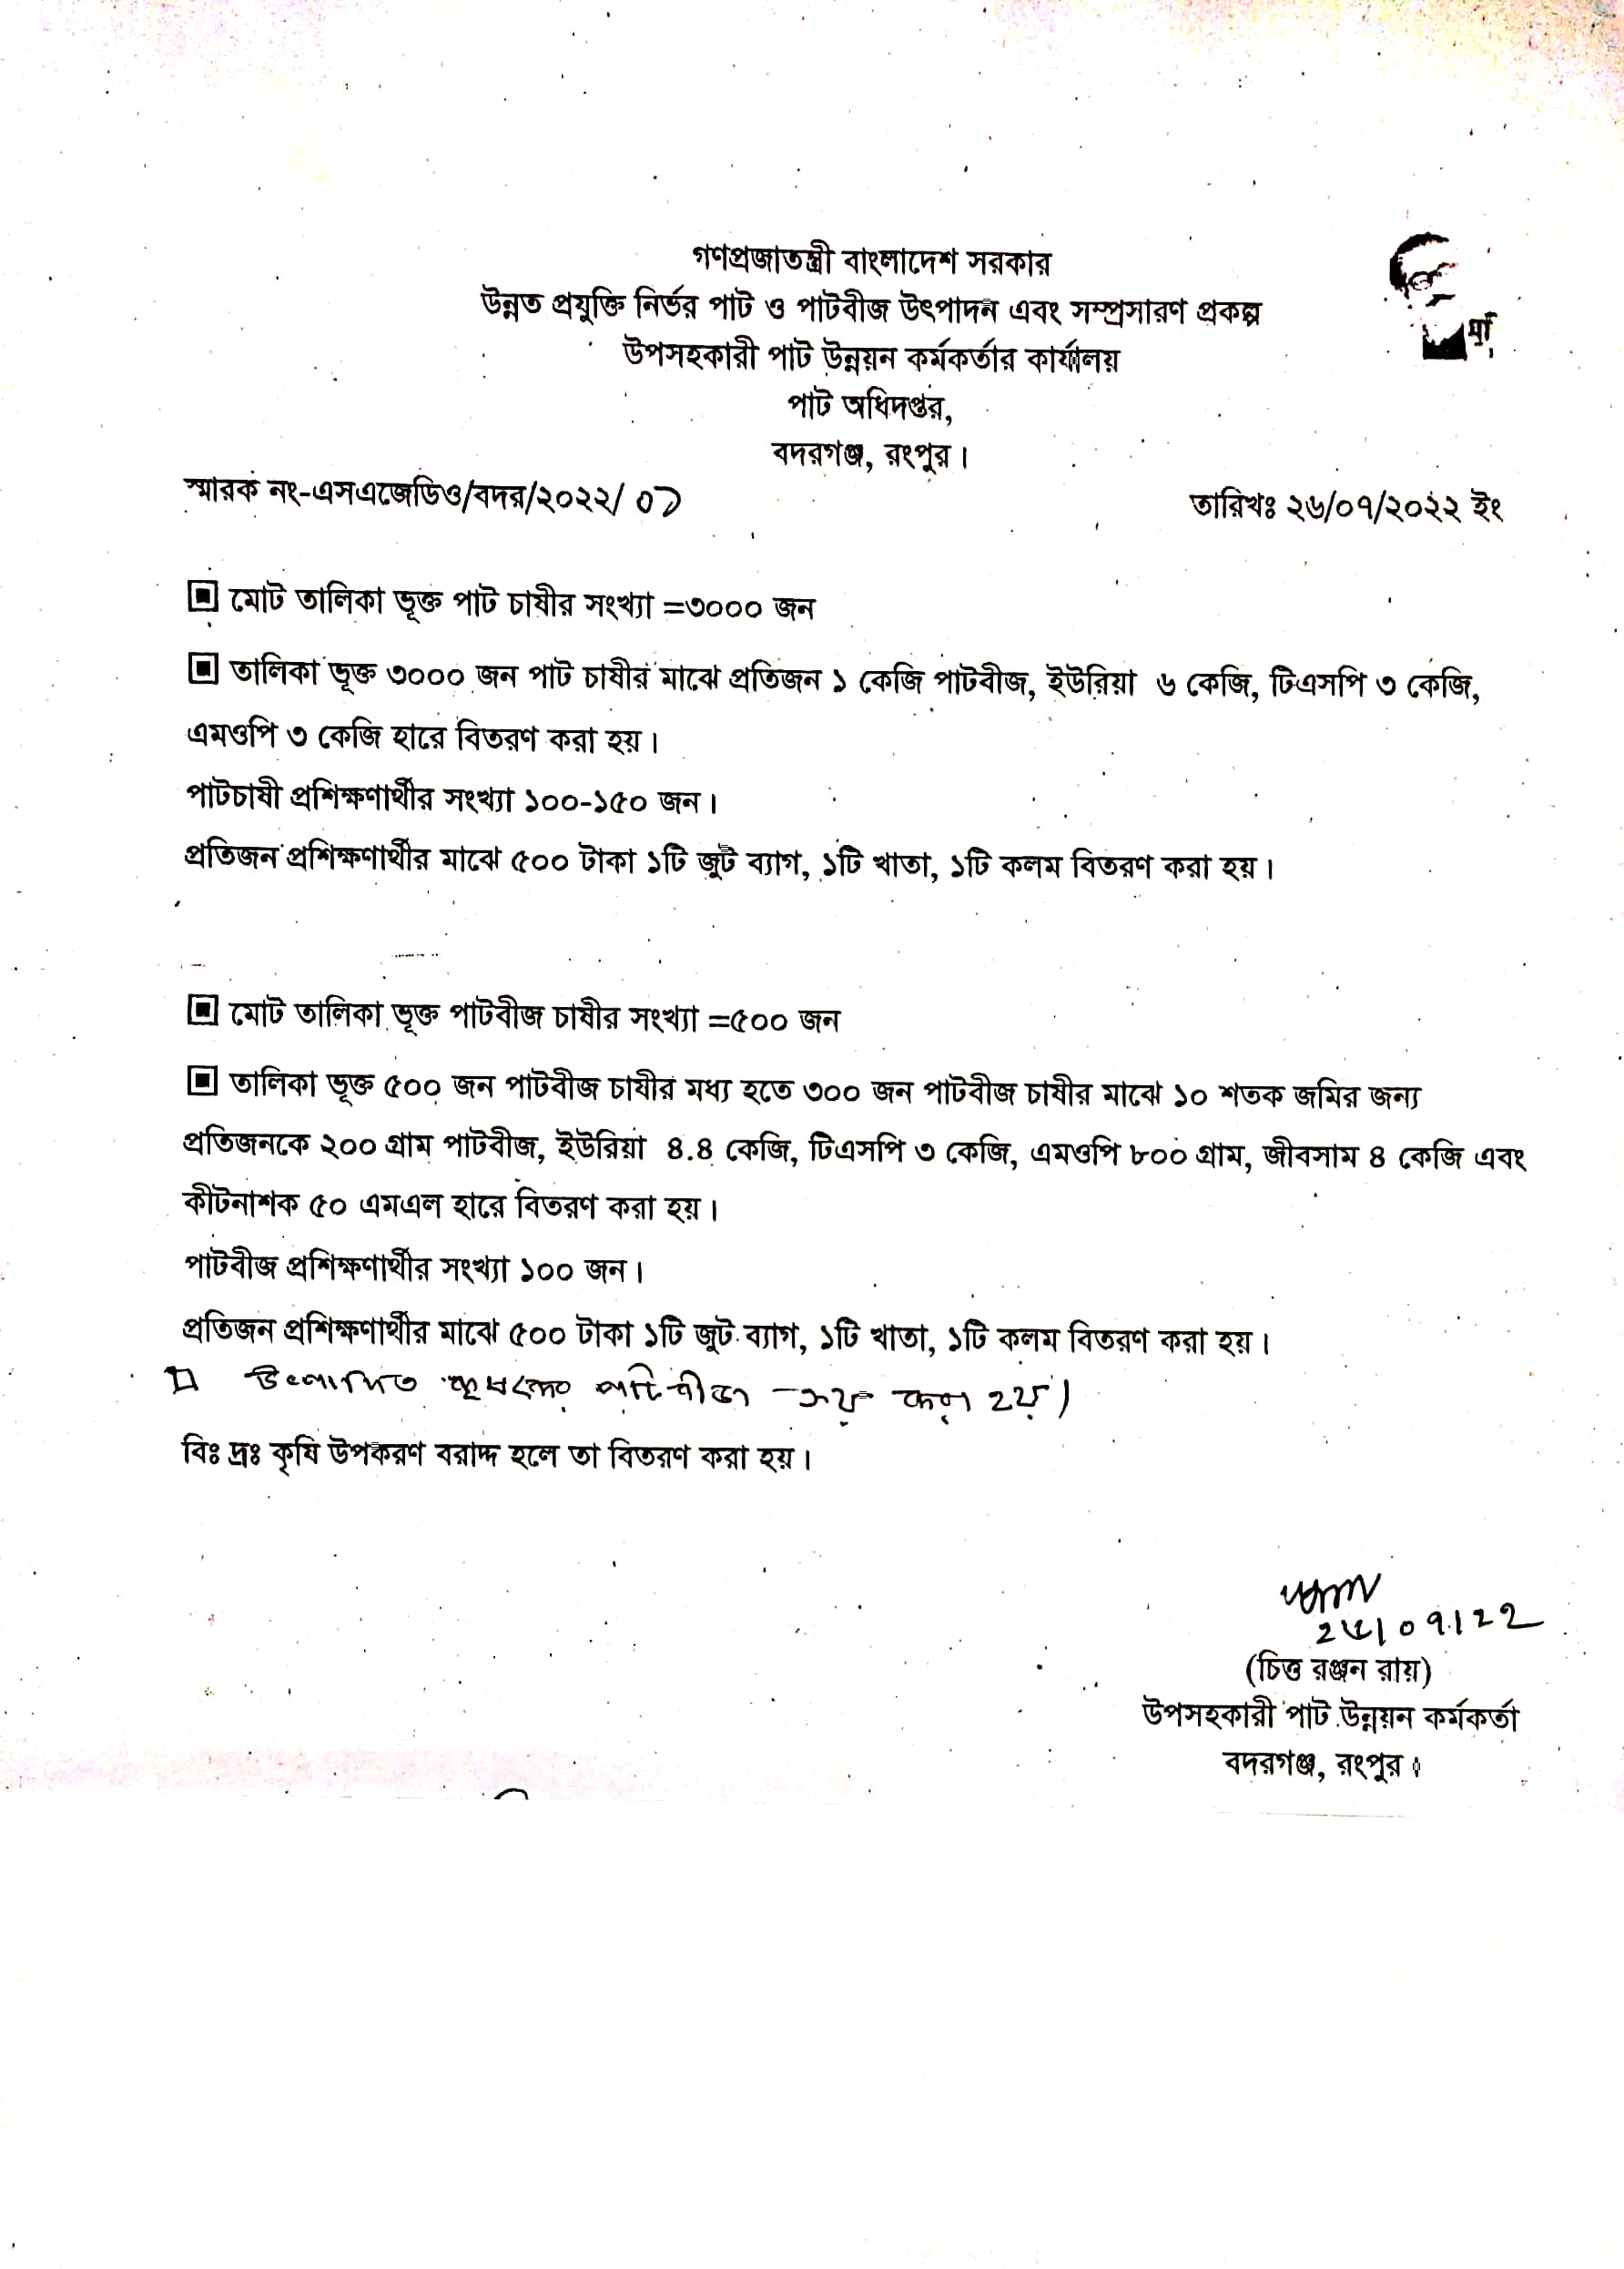 গণপ্রজাতন্ত্রী বাংলাদেশ সরকার
উন্নত প্রযুক্তি নির্ভর পাট ও পাটবীজ উৎপাদন এবং সম্প্রসারণ প্রকল্প
উপসহকারী পাট উন্নয়ন কর্মকর্তার কার্যালয়
পাট অধিদপ্তর,
বদরগঞ্জ, রংপুর।
স্মারক নং-এসএজেডিও/বদর/২০২২/ ০১ তারিখঃ ২৬/০৭/২০২২ ইং
মোট তালিকা ভূক্ত পাট চাষীর সংখ্যা =৩০০০ জন
তালিকা ভূক্ত ৩০০০ জন পাট চাষীর মাঝে প্রতিজন ১ কেজি পাটবীজ, ইউরিয়া ৬ কেজি, টিএসপি ৩ কেজি,
এমওপি ৩ কেজি হারে বিতরণ করা হয়।
পাটচাষী প্রশিক্ষণার্থীর সংখ্যা ১০০-১৫০ জন।
প্রতিজন প্রশিক্ষণার্থীর মাঝে ৫০০ টাকা ১টি জুট ব্যাগ, ১টি খাতা, ১টি কলম বিতরণ করা হয়।
মোট তালিকা ভূক্ত পাটবীজ চাষীর সংখ্যা =৫০০ জন
তালিকা ভূক্ত ৫০০ জন পাটবীজ চাষীর মধ্য হতে ৩০০ জন পাটবীজ চাষীর মাঝে ১০ শতক জমির জন্য
প্রতিজনকে ২০০ গ্রাম পাটবীজ, ইউরিয়া ৪.৪ কেজি, টিএসপি ৩ কেজি, এমওপি ৮০০ গ্রাম, জীবসাম ৪ কেজি এবং
কীটনাশক ৫০ এমএল হারে বিতরণ করা হয়।
পাটবীজ প্রশিক্ষণার্থীর সংখ্যা ১০০ জন।
প্রতিজন প্রশিক্ষণার্থীর মাঝে ৫০০ টাকা ১টি জুট ব্যাগ, ১টি খাতা, ১টি কলম বিতরণ করা হয়।
উৎপাদিত কৃষকের পাটবীজ ক্রয় করা হয়।
বিঃ দ্রঃ কৃষি উপকরণ বরাদ্দ হলে তা বিতরণ করা হয়।
(চিত্ত রঞ্জন রায়)
উপসহকারী পাট উন্নয়ন কর্মকর্তা
বদরগঞ্জ, রংপুর।